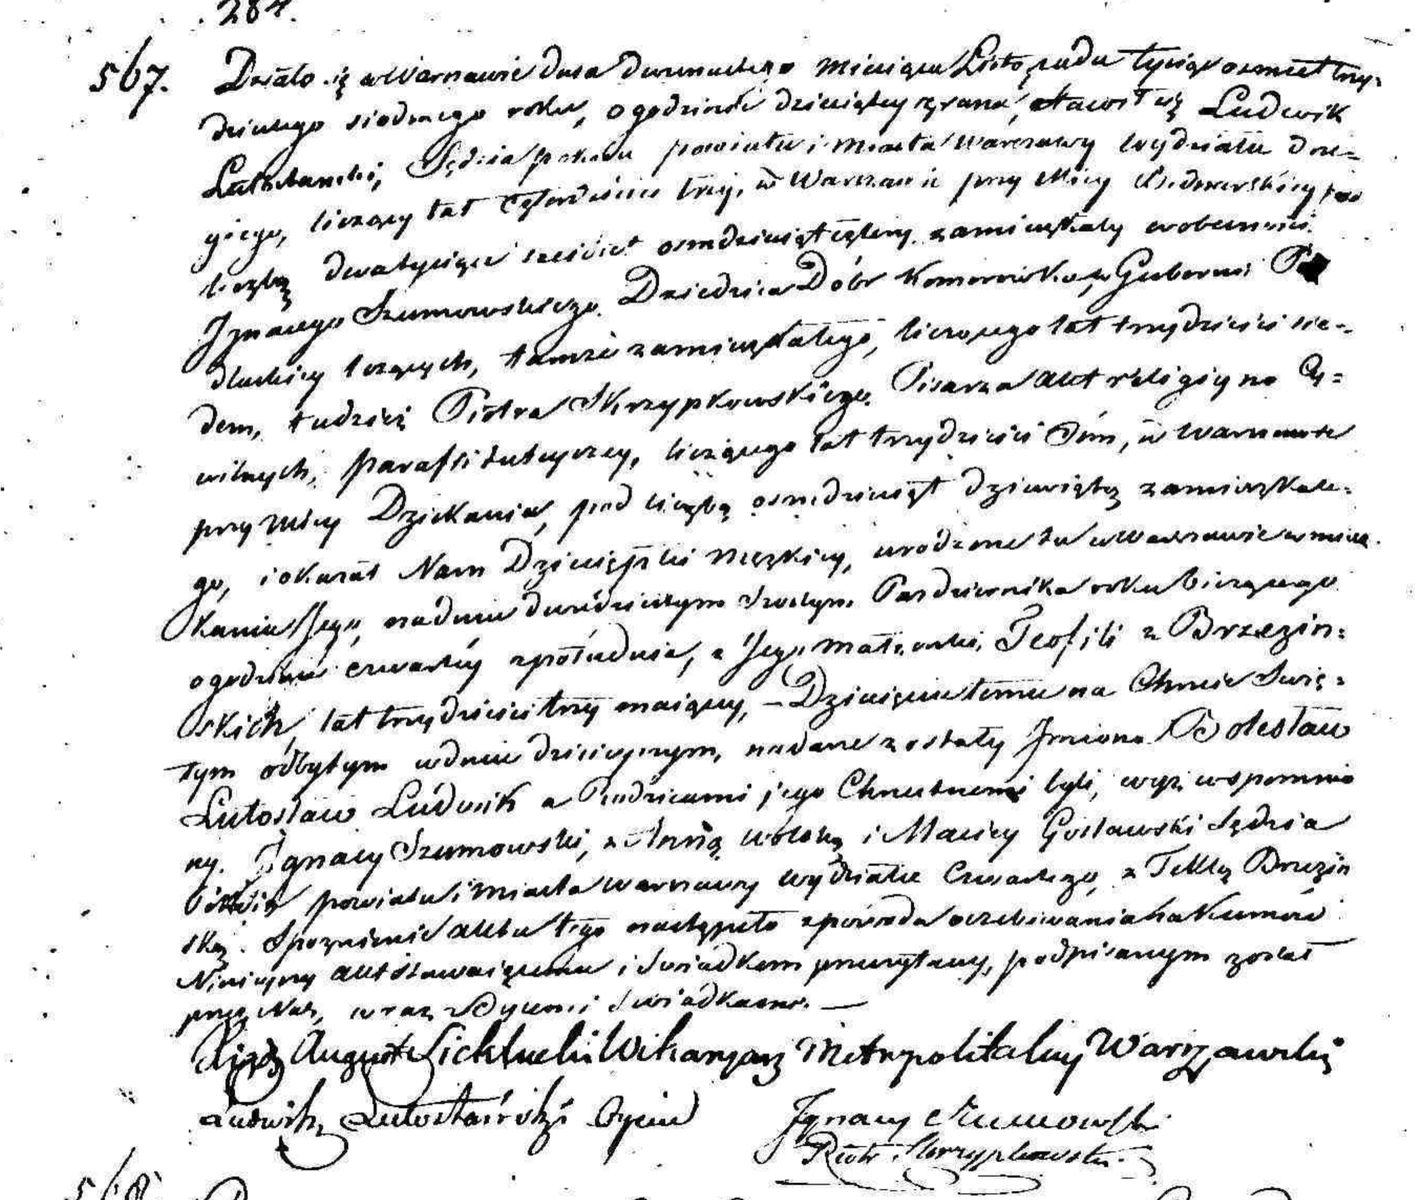 284.
567. Działo się w Warszawie dnia dwunastego miesiąca Listopada tysiąc osmset trzy-
dziestego siodmego roku, o godzinie dziesiątey zrana, stawił się Ludwik
Lutosłański, Sędzia pokoiu powiatu i miasta Warszawy Wydziału dru-
giego, liczący lat czterdzieści trzy, w Warszawie przy ulicy Bednarskiey pod
liczbą dwatysiące sześćset osmdziesiąt cztery zamieszkały w obecności
Ignacego Szumowskiego Dziedzica Dóbr Komorowka, w Gubernii Po
dlaskiey leżących, tamże zamieszkałego, liczącego lat trzydzieści sie-
dem, tudzież Piotra Skrzypkowskiego Pisarza akt religiyno Cy-
wilnych, parafii tuteyszey, liczącego lat trzydzieści ośm, w Warszawie
przy ulicy Dziekania, pod liczbą osmdziesiąt dziewiątą zamieszkałe-
go, i okazał Nam Dziecię płci męzkiey, urodzone tu w Warszawie w miesz-
kaniu Jego, na dniu dwudziestym szostym Pazdziernika roku bieżącego
o godzinie czwartey z południa, z Jego małżonki, Teofili z Brzezin-
skich, lat trzydzieści trzy maiącey, – Dziecięciu temu na Chrzcie Świę-
tym odbytym w dniu dzisieyszym, nadane zostały Imiona Bolesław
Lutosław Ludwik a Rodzicami jego Chrzestnemi byli, wyż wspomnio
ny Ignacy Szumowski, z Anną i Maciey Gosławski Sędzia
powiatu i miasta Warszawy wydziału Czwartego, z Teklą Brzeziń
ską. Spoznienie aktu tego nastąpiło z powodu oczekiwania na Kumów
Ninieyszy akt stawaiącemu i świadkom przeczytany, podpisanym został
przez Nas, wraz z Oycem i Świadkami. —
Xiądz August Wikaryusz Metropolitalny Warszawski
Ludwik Lutostański Oyciec Ignacy Szumowski
Piotr Skrzypkowski
568